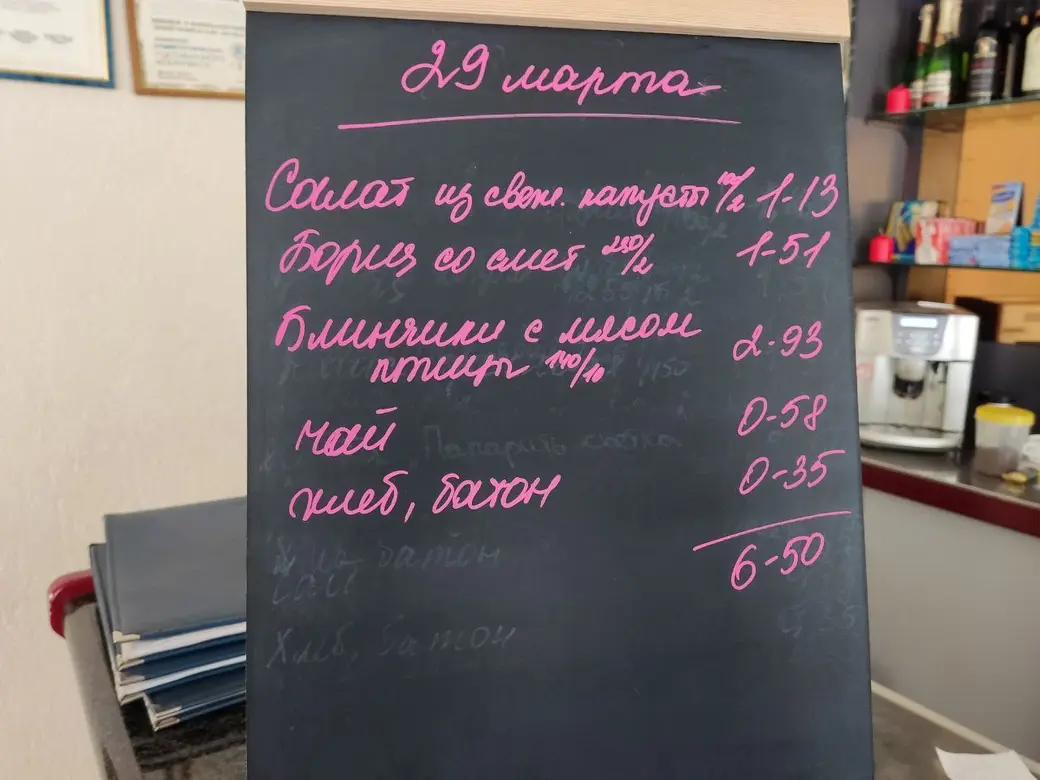 29 марта
Салат из свеж. капусты 100/2 1-13
Борщ со смет 250/2 1-51
Блинчики с мясом
птицы 140/10 2-93
Чай 0-58
Хлеб, батон 0-35
6-50
Хлеб, батон